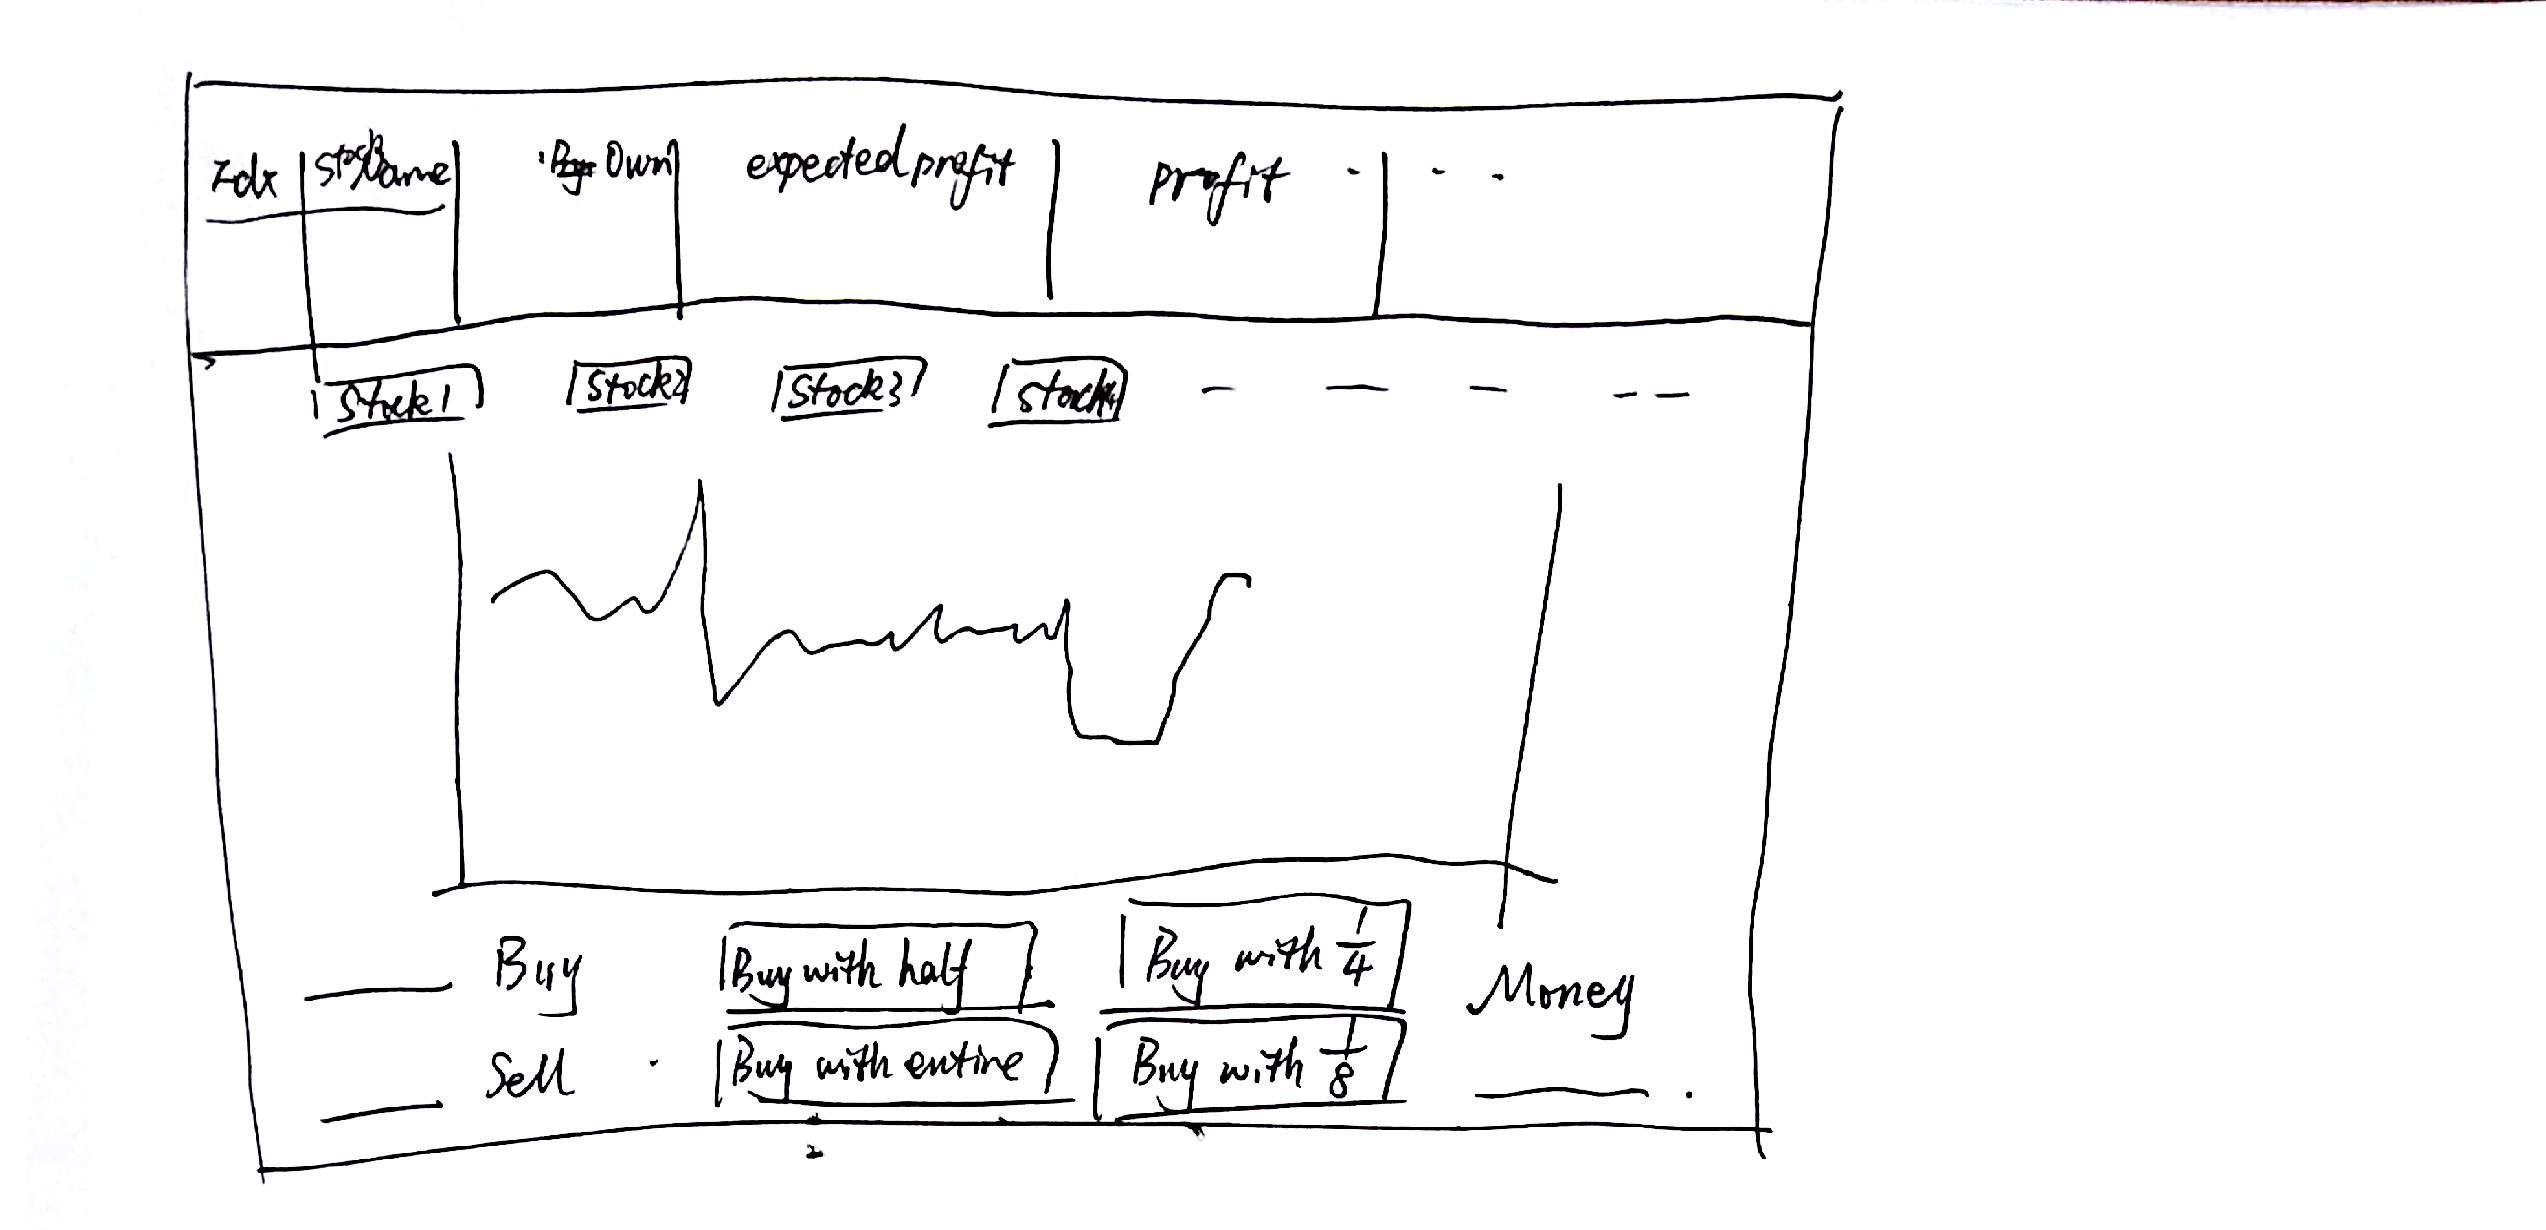 Idx Stock Name Own expected profit profit . . .
Stock1 Stock2 Stock3 Stock4 - - - - -
Buy Buy with half Buy with 1/4 Money
Sell Buy with entire Buy with 1/8